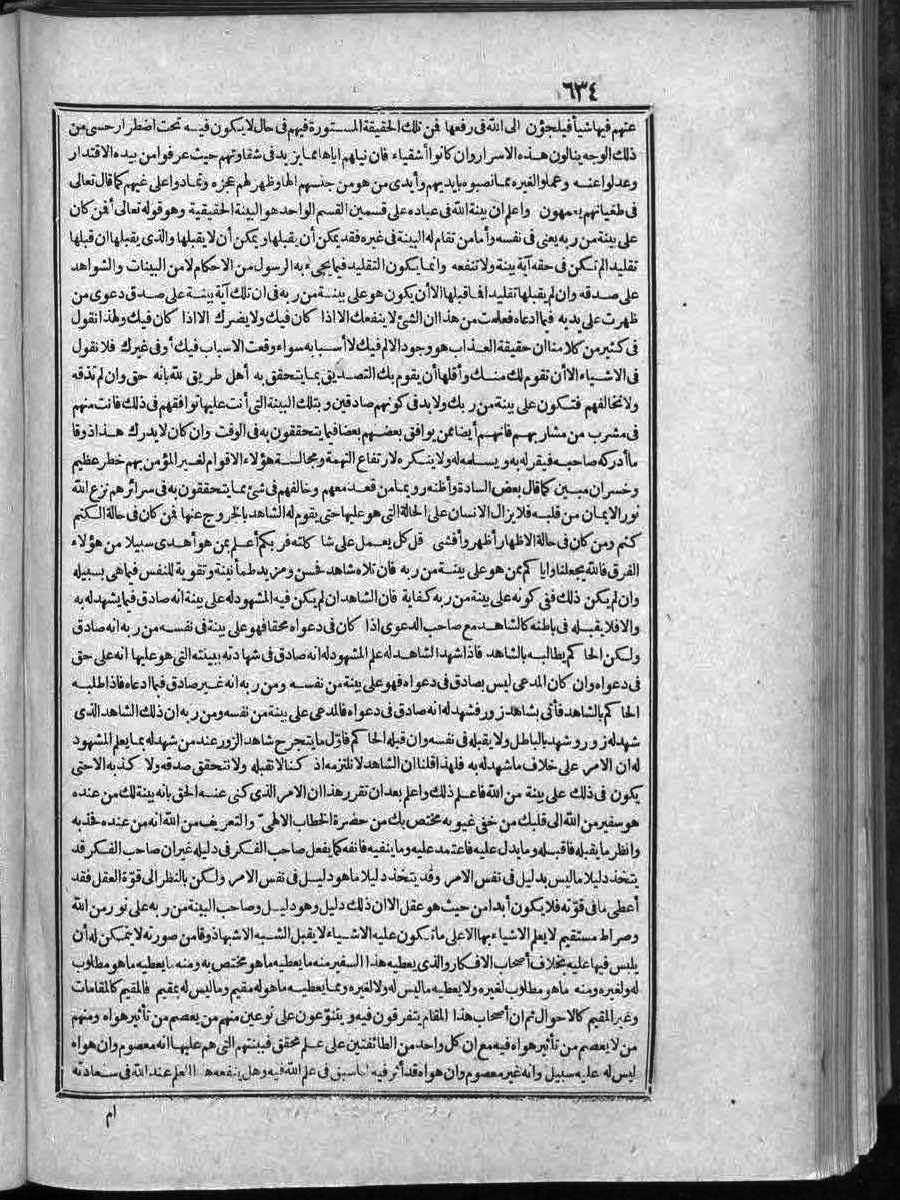 ٦٣٤
عنهم فيها شيأ فيلجؤن الى الله فى رفعها فمن تلك الحقيقة المستورة فيهم فى حال لا يكون فيه تحت اضطرار حسى من
ذلك الوجه ينالون هذه الاسرار وان كانوا أشقياء فان نيلهم اياها مما يزيد فى شقاوتهم حيث عرفوا من بيده الاقتدار
وعدلوا عنه وعملوا لغيره مما نصبوه بايديهم وأيدى من هو من جنسهم الها وظهر لهم عجزه وتمادوا على غيهم كما قال تعالى
فى طغيانهم يعمهون واعلم ان بينة الله فى عباده على قسمين القسم الواحد هو البينة الحقيقية وهو قوله تعالى أفمن كان
على بينة من ربه يعنى فى نفسه وأما من تقام له البينة فى غيره فقد يمكن أن يقبلها ويمكن أن لا يقبلها والذى يقبلها ان قبلها
تقليدا لم تكن فى حقه آية بينة ولا تنفعه وانما يكون التقليد فيما يجىء به الرسول من الاحكام لا من البينات والشواهد
على صدقه وان لم يقبلها تقليدا فما قبلها الا أن يكون هو على بينة من ربه فى ان تلك آية بينة على صدق دعوى من
ظهرت على يديه فيما ادعاه فعلمت من هذا ان الشئ لا ينفعك الا اذا كان فيك ولا يضرك الا اذا كان فيك ولهذا نقول
فى كثير من كلامنا ان حقيقة العذاب هو وجود الالم فيك لا أسبابه سواء وقعت الاسباب فيك أو فى غيرك فلا نقول
فى الاشياء الا أن تقوم لك منك وأقلها أن يقوم بك التصديق بما يتحقق به أهل طريق الله بانه حق وان لم تذقه
ولا تخالفهم فتكون على بينة من ربك ولا بد فى كونهم صادقين وبتلك البينة التى أنت عليها توافقهم فى ذلك فانت منهم
فى مشرب من مشاربهم فانهم أيضا ممن يوافق بعضهم بعضا فيما يتحققون به فى الوقت وان كان لا يدرك هذا ذوقا
ما أدركه صاحبه فيقر له به ويسلمه له ولا ينكره لارتفاع التهمة ومجالسة هؤلاء الاقوام لغير المؤمن بهم خطر عظيم
وخسران مبين كما قال بعض السادة وأظنه رويما من قعد معهم وخالفهم فى شئ مما يتحققون به فى سرائرهم نزع الله
نور الايمان من قلبه فلا يزال الانسان على الحالة التى هو عليها حتى يقوم له الشاهد بالخروج عنها فمن كان فى حالة الكتم
كتم ومن كان فى حالة الاظهار أظهر وأفشى قل كل يعمل على شاكلته فربكم أعلم بمن هو أهدى سبيلا من هؤلاء
الفرق فالله يجعلنا واياكم ممن هو على بينة من ربه فان تلاه شاهد فحسن ومزيد طمأنينة وتقوية للنفس فيما هى بسبيله
وان لم يكن ذلك ففى كونه على بينة من ربه كفاية فان الشاهد ان لم يكن فيه المشهود له على بينة انه صادق فيما يشهد له به
والا فلا يقبله فى باطنه كالشاهد مع صاحب الدعوى اذا كان فى دعواه محقا فهو على بينة فى نفسه من ربه انه صادق
ولكن الحاكم يطالبه بالشاهد فاذا شهد الشاهد له علم المشهود له انه صادق فى شهادته ببينته التى هو عليها انه على حق
فى دعواه وان كان المدعى ليس بصادق فى دعواه فهو على بينة من نفسه ومن ربه انه غير صادق فيما ادعاه فاذا طلبه
الحاكم بالشاهد فأتى بشاهد زور فشهد له انه صادق فى دعواه فالمدعى على بينة من نفسه ومن ربه ان ذلك الشاهد الذى
شهد له زور وشهد بالباطل ولا يقبله فى نفسه وان قبله الحاكم فاول ما يتجرح شاهد الزور عند من شهد له بما يعلم المشهود
له ان الامر على خلاف ما شهد له به فلهذا قلنا ان الشاهد لا نلتزمه اذ كنا لا نقبله ولا نتحقق صدقه ولا كذبه الا حتى
يكون فى ذلك على بينة من الله فاعلم ذلك واعلم بعد ان تقرر هذا ان الامر الذى كنى عنه الحق بانه بينة لك من عنده
هو سفير من الله الى قلبك من خفى غيوبه مختص بك من حضرة الخطاب الالهىّ والتعريف من الله انه من عنده فخذ به
وانظر ما يقبله فاقبله وما يدل عليه فاعتمد عليه وما ينفيه فانفه كما يفعل صاحب الفكر فى دليله غير ان صاحب الفكر قد
يتخذ دليلا ما ليس بدليل فى نفس الامر وقد يتخذ دليلا ما هو دليل فى نفس الامر ولكن بالنظر الى قوّة العقل فقد
أعطى ما فى قوّته فلا يكون أبدا من حيث هو عقل الا ان ذلك دليل وهو دليل وصاحب البينة من ربه على نور من الله
وصراط مستقيم لا يعلم الاشياء بها الا على ما تكون عليه الاشياء لا يقبل الشبه الا شبها ذوقا من صورته لا يتمكن له أن
يلبس فيها عليه بخلاف أصحاب الافكار والذى يعطيه هذا السفير منه ما يعطيه ما هو مختص به ومنه ما يعطيه ما هو مطلوب
له ولغيره ومنه ما هو مطلوب لغيره ولا يعطيه ما ليس له ولا لغيره ومما يعطيه ما هو له مقيم وما ليس له بمقيم فالمقيم كالمقامات
وغير المقيم كالاحوال ثم ان أصحاب هذا المقام يتفرقون فيه ويتنوّعون على نوعين منهم من يعصم من تأثير هواه ومنهم
من لا يعصم من تأثير هواه فيه مع ان كل واحد من الطائفتين على علم محقق فبينتهم التى هم عليها انه معصوم وان هواه
ليس له عليه سبيل وانه غير معصوم وان هواه قد أثر فيه لما سبق فى علم الله فيه وهل ينفعه هذا العلم عند الله فى سعادته
ام